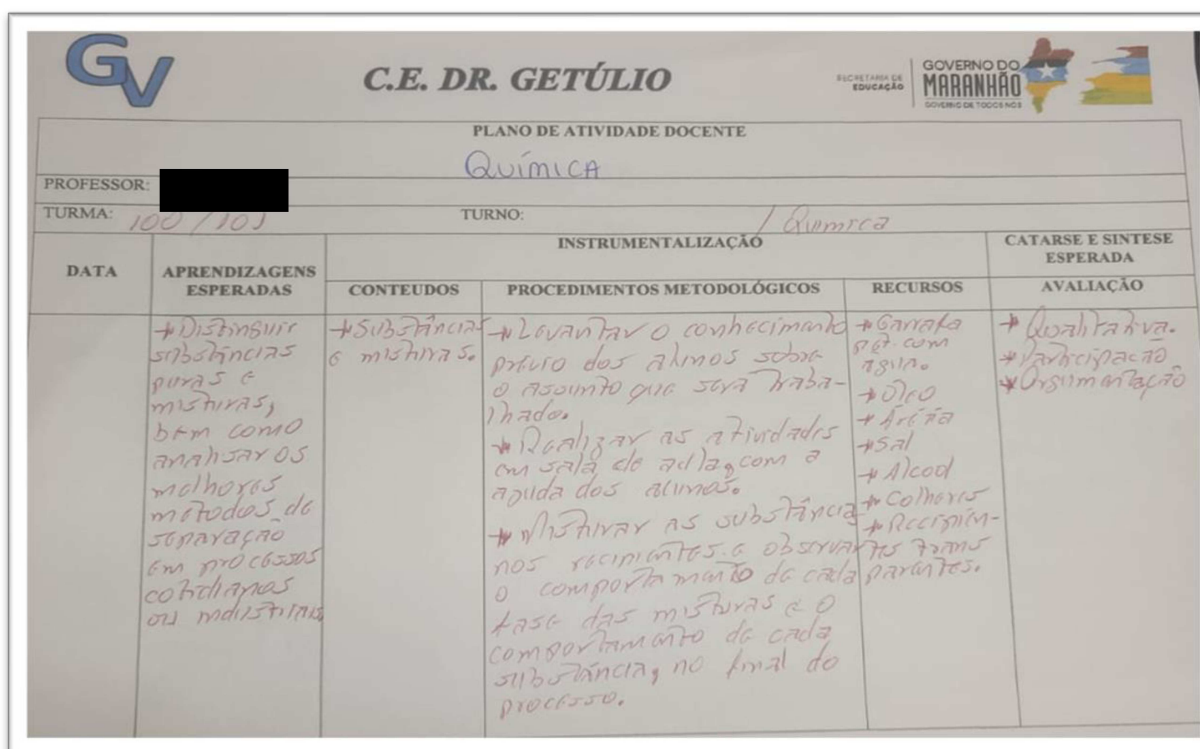 GV
C.E. DR. GETÚLIO
SECRETARIA DE
EDUCAÇÃO
GOVERNO DO
MARANHÃO
GOVERNO DE TODOS NÓS
PLANO DE ATIVIDADE DOCENTE
QUÍMICA
PROFESSOR:
TURMA: 100 / 101 TURNO: / Química
DATA
APRENDIZAGENS
ESPERADAS
INSTRUMENTALIZAÇÃO
CONTEUDOS
PROCEDIMENTOS METODOLÓGICOS
RECURSOS
CATARSE E SINTESE
ESPERADA
AVALIAÇÃO
Distinguir
substâncias
puras e
misturas,
bem como
analisar os
melhores
metodos de
separação
em processos
cotidianos
ou industriais
Substâncias
e misturas.
Levantar o conhecimento
prévio dos alunos sobre
o assunto que será traba-
lhado.
Realizar as atividades
em sala de aula, com a
ajuda dos alunos.
Misturar as substância
nos recipientes e observar
o comportamento de cada
fase das misturas e o
comportamento de cada
substância, no final do
processo.
Garrafa
pet com
água.
Óleo
Areia
Sal
Alcool
Colheres
Recipien-
tes trans
parentes.
Qualitativa.
Participação
Argumentação